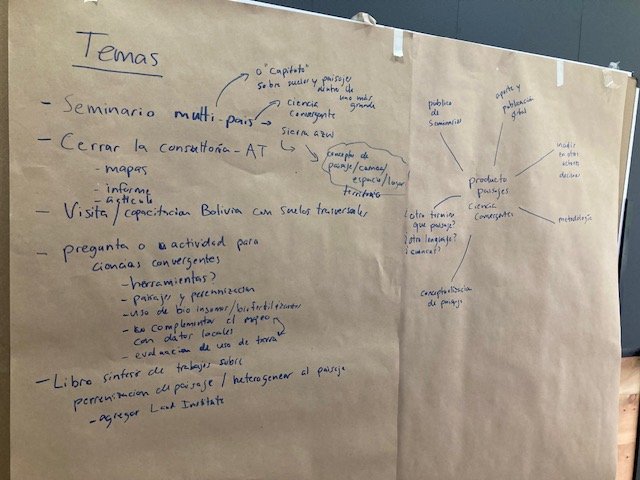 Temas
o "Capitulo"
sobre suelos y paisajes
dentro de
uno más
grande
- Seminario multi-pais
ciencia
convergente
sierra azul
concepto de
paisaje/cuenca/
espacio/lugar
territorio
- Cerrar la consultoria - AT
- mapas
- informe
- articulo
- Visita/capacitacion Bolivia con suelos trasversales
- pregunta o actividad para
ciencias convergentes
- herramientas?
- paisajes y perennizacion
- uso de bio insumos/biofertilizantes
- complementar el mapeo
con datos locales
- evaluacion de uso de tierra
- Libro sintesis de trabajos sobre
perennizacion de paisaje / heterogenear el paisaje
- agregar Land Institute
publico
de
Seminarios
aporte y
publicación
global
en otros
actores
producto
paisajes
Ciencia
Convergentes
metodología
¿otro termino
que paisaje?
¿otro lenguaje?
¿cuenca?
conceptualizacion
de paisaje